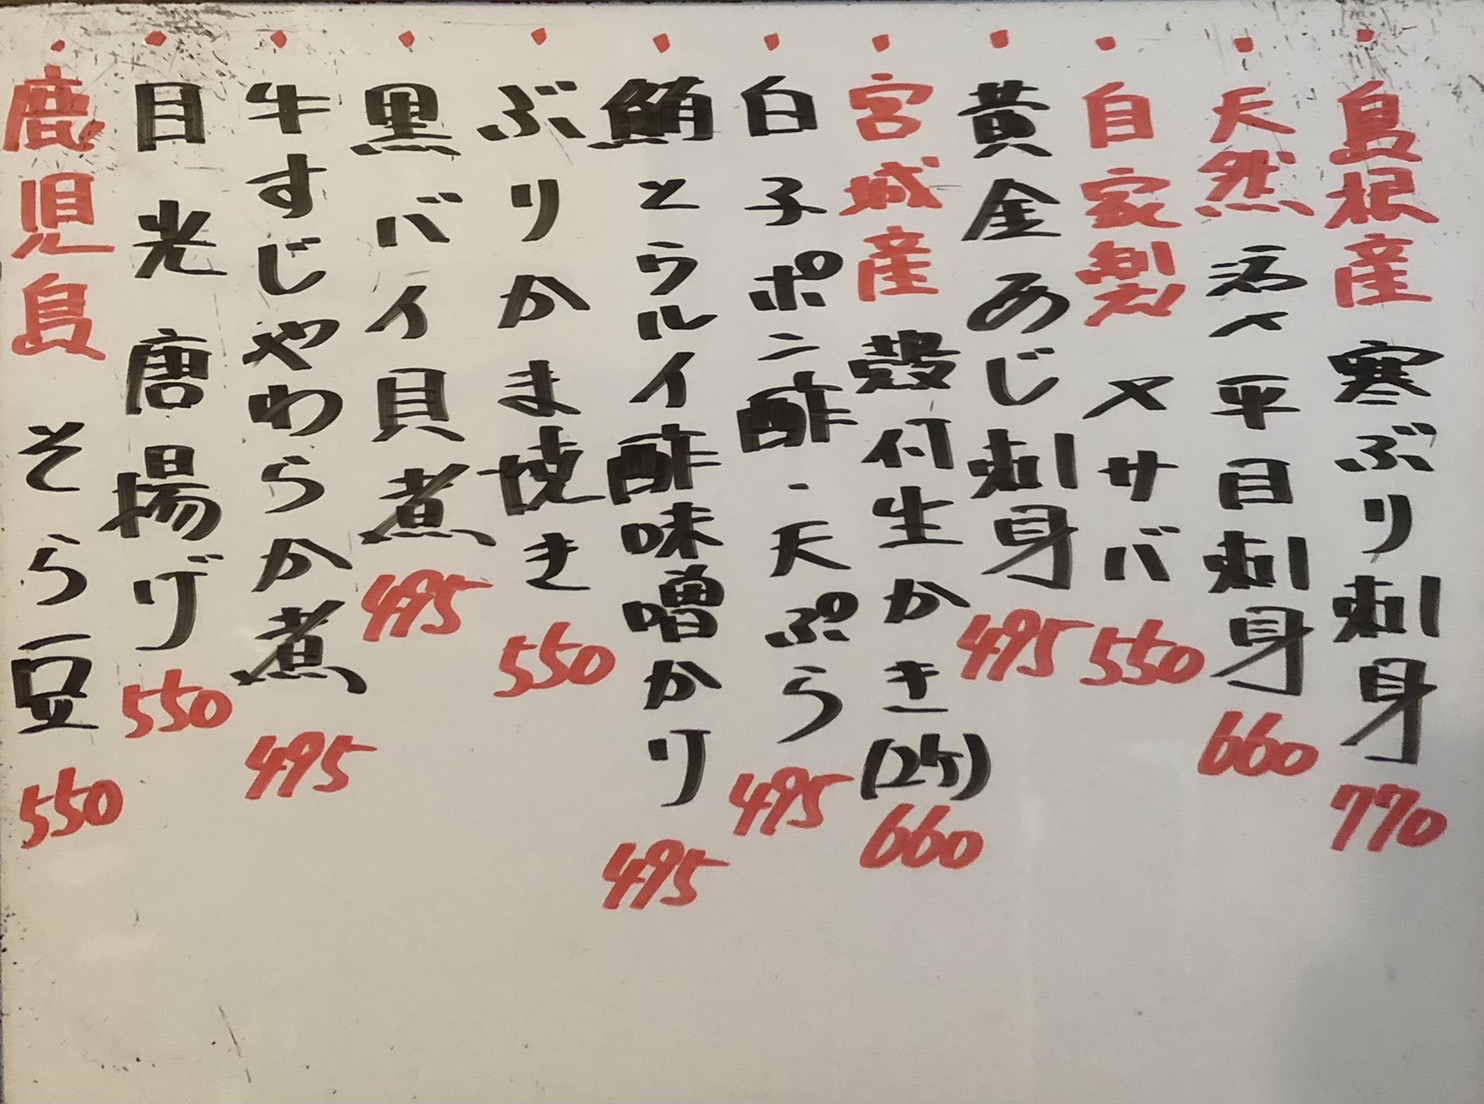 ・島根産 寒ぶり刺身 770
・天然 活〆 平目刺身 660
・自家製 〆サバ 550
・黄金あじ刺身 495
・宮城産 殻付生かき(2ケ) 660
・白子ポン酢・天ぷら 495
・鮪とウルイ酢味噌かけ 495
・ぶりかま焼き 550
・黒バイ貝煮 495
・牛すじやわらか煮 495
・目光 唐揚げ 550
・鹿児島 そら豆 550